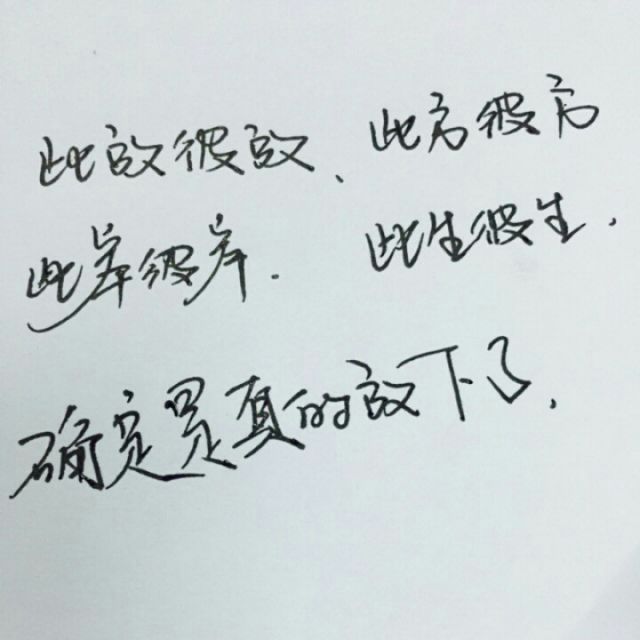 此放彼放、此方彼方
此岸彼岸. 此生彼生.
确定是真的放下了,